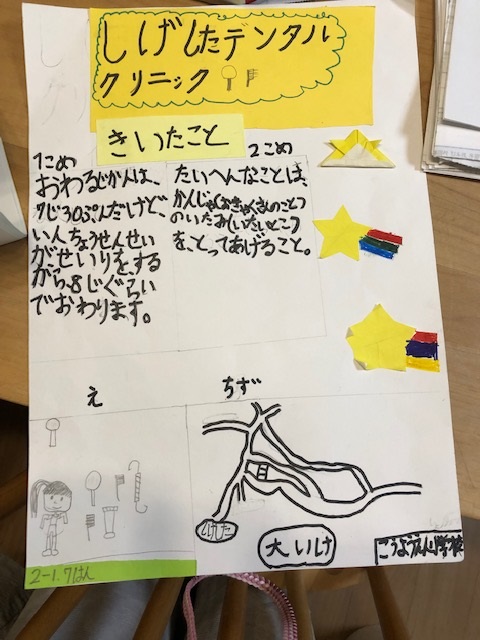 しげしたデンタル
クリニック
きいたこと
1こめ
おわるじかんは、
7じ30ぷんだけど、
いんちょうせんせい
がっせいりを、する
がら、8じぐらい
でおわります。
2こめ
たいへんなことは、
かんじゃ(おきゃくさんのこと)
のいたみ(いたいところ)
を、とってあげること。
え
ちず
しげした
大いけ
こうようだい小学校
2-1.7はん